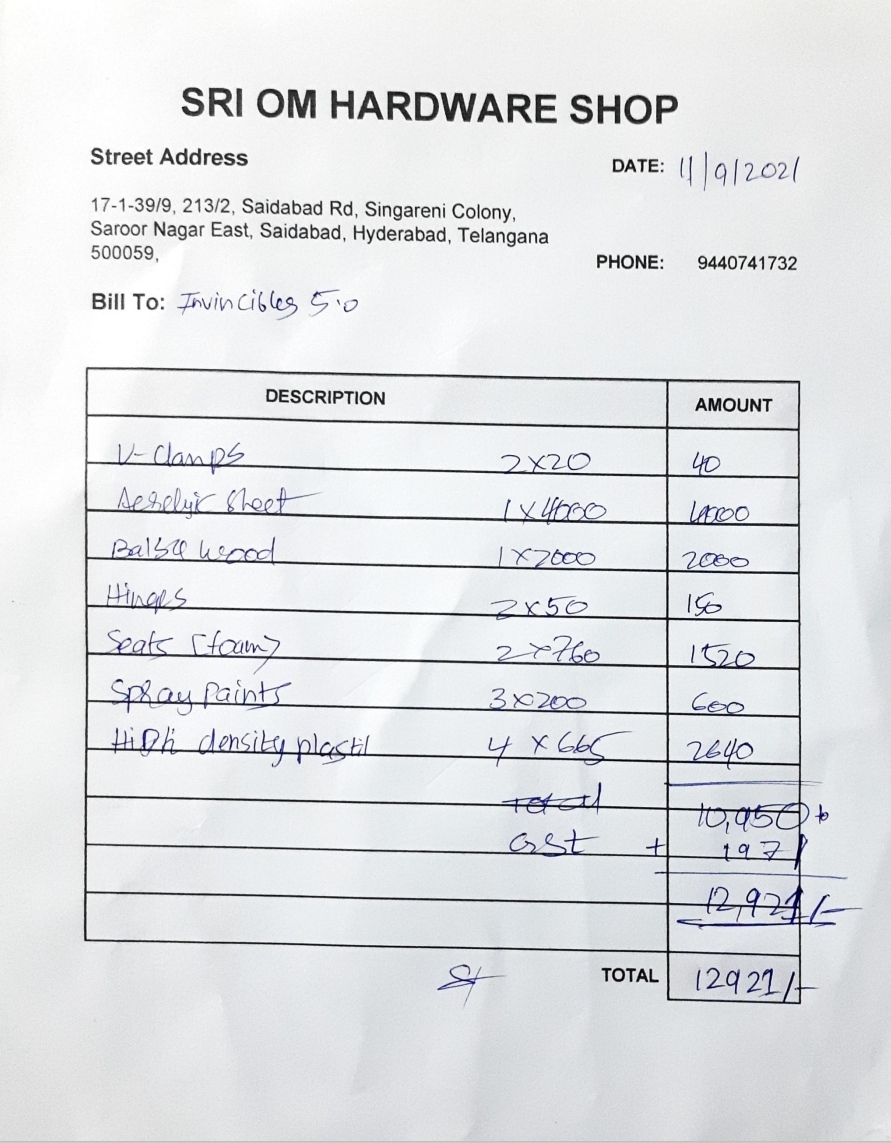 SRI OM HARDWARE SHOP
Street Address
DATE: 11/9/2021
17-1-39/9, 213/2, Saidabad Rd, Singareni Colony,
Saroor Nagar East, Saidabad, Hyderabad, Telangana
500059,
PHONE: 9440741732
Bill To: Invincibles 5.0
DESCRIPTION AMOUNT
U-clamps 2X20 40
Acrelyic sheet 1X4000 4000
Balsa wood 1X2000 2000
Hinges 2X50 150
Seats (foam) 2X760 1520
Spray Paints 3X200 600
High density plastic 4X665 2640
Total 10,950
GST + 1971
12,921/-
TOTAL 12921/-